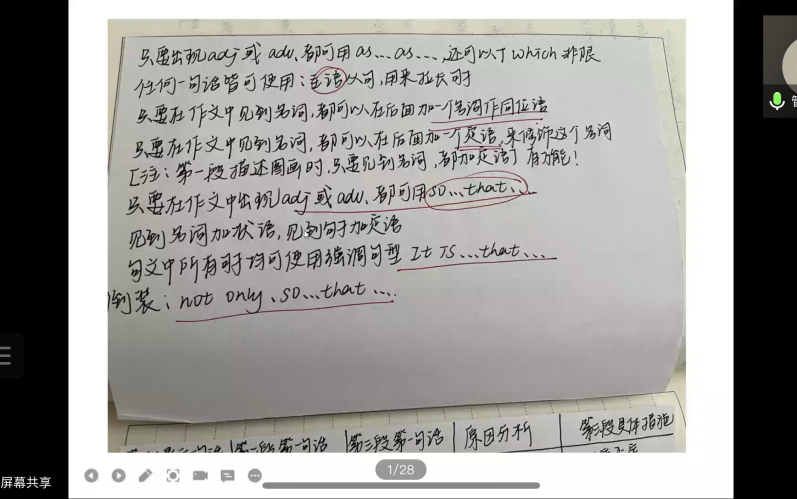 只要出现adj或adv、都可用as…as…,还可以下which非限
任何一句话皆可使用:主语从句,用来拉长句子
只要在作文中见到名词,都可以在后面加一个名词作同位语
只要在作文中见到名词,都可以在后面加一个定语,来修饰这个名词
[注:第一段描述图画时,只要见到名词,都加定语]有功能!
只要在作文中出现adj或adv、都可用so…that…
见到名词加状语,见到句子加定语
句文中所有句子均可使用强调句型 It is…that…
倒装:not only、so…that…
第二段第一句话 第三段第一句话 原因分析 第三段具体措施
1/28
屏幕共享